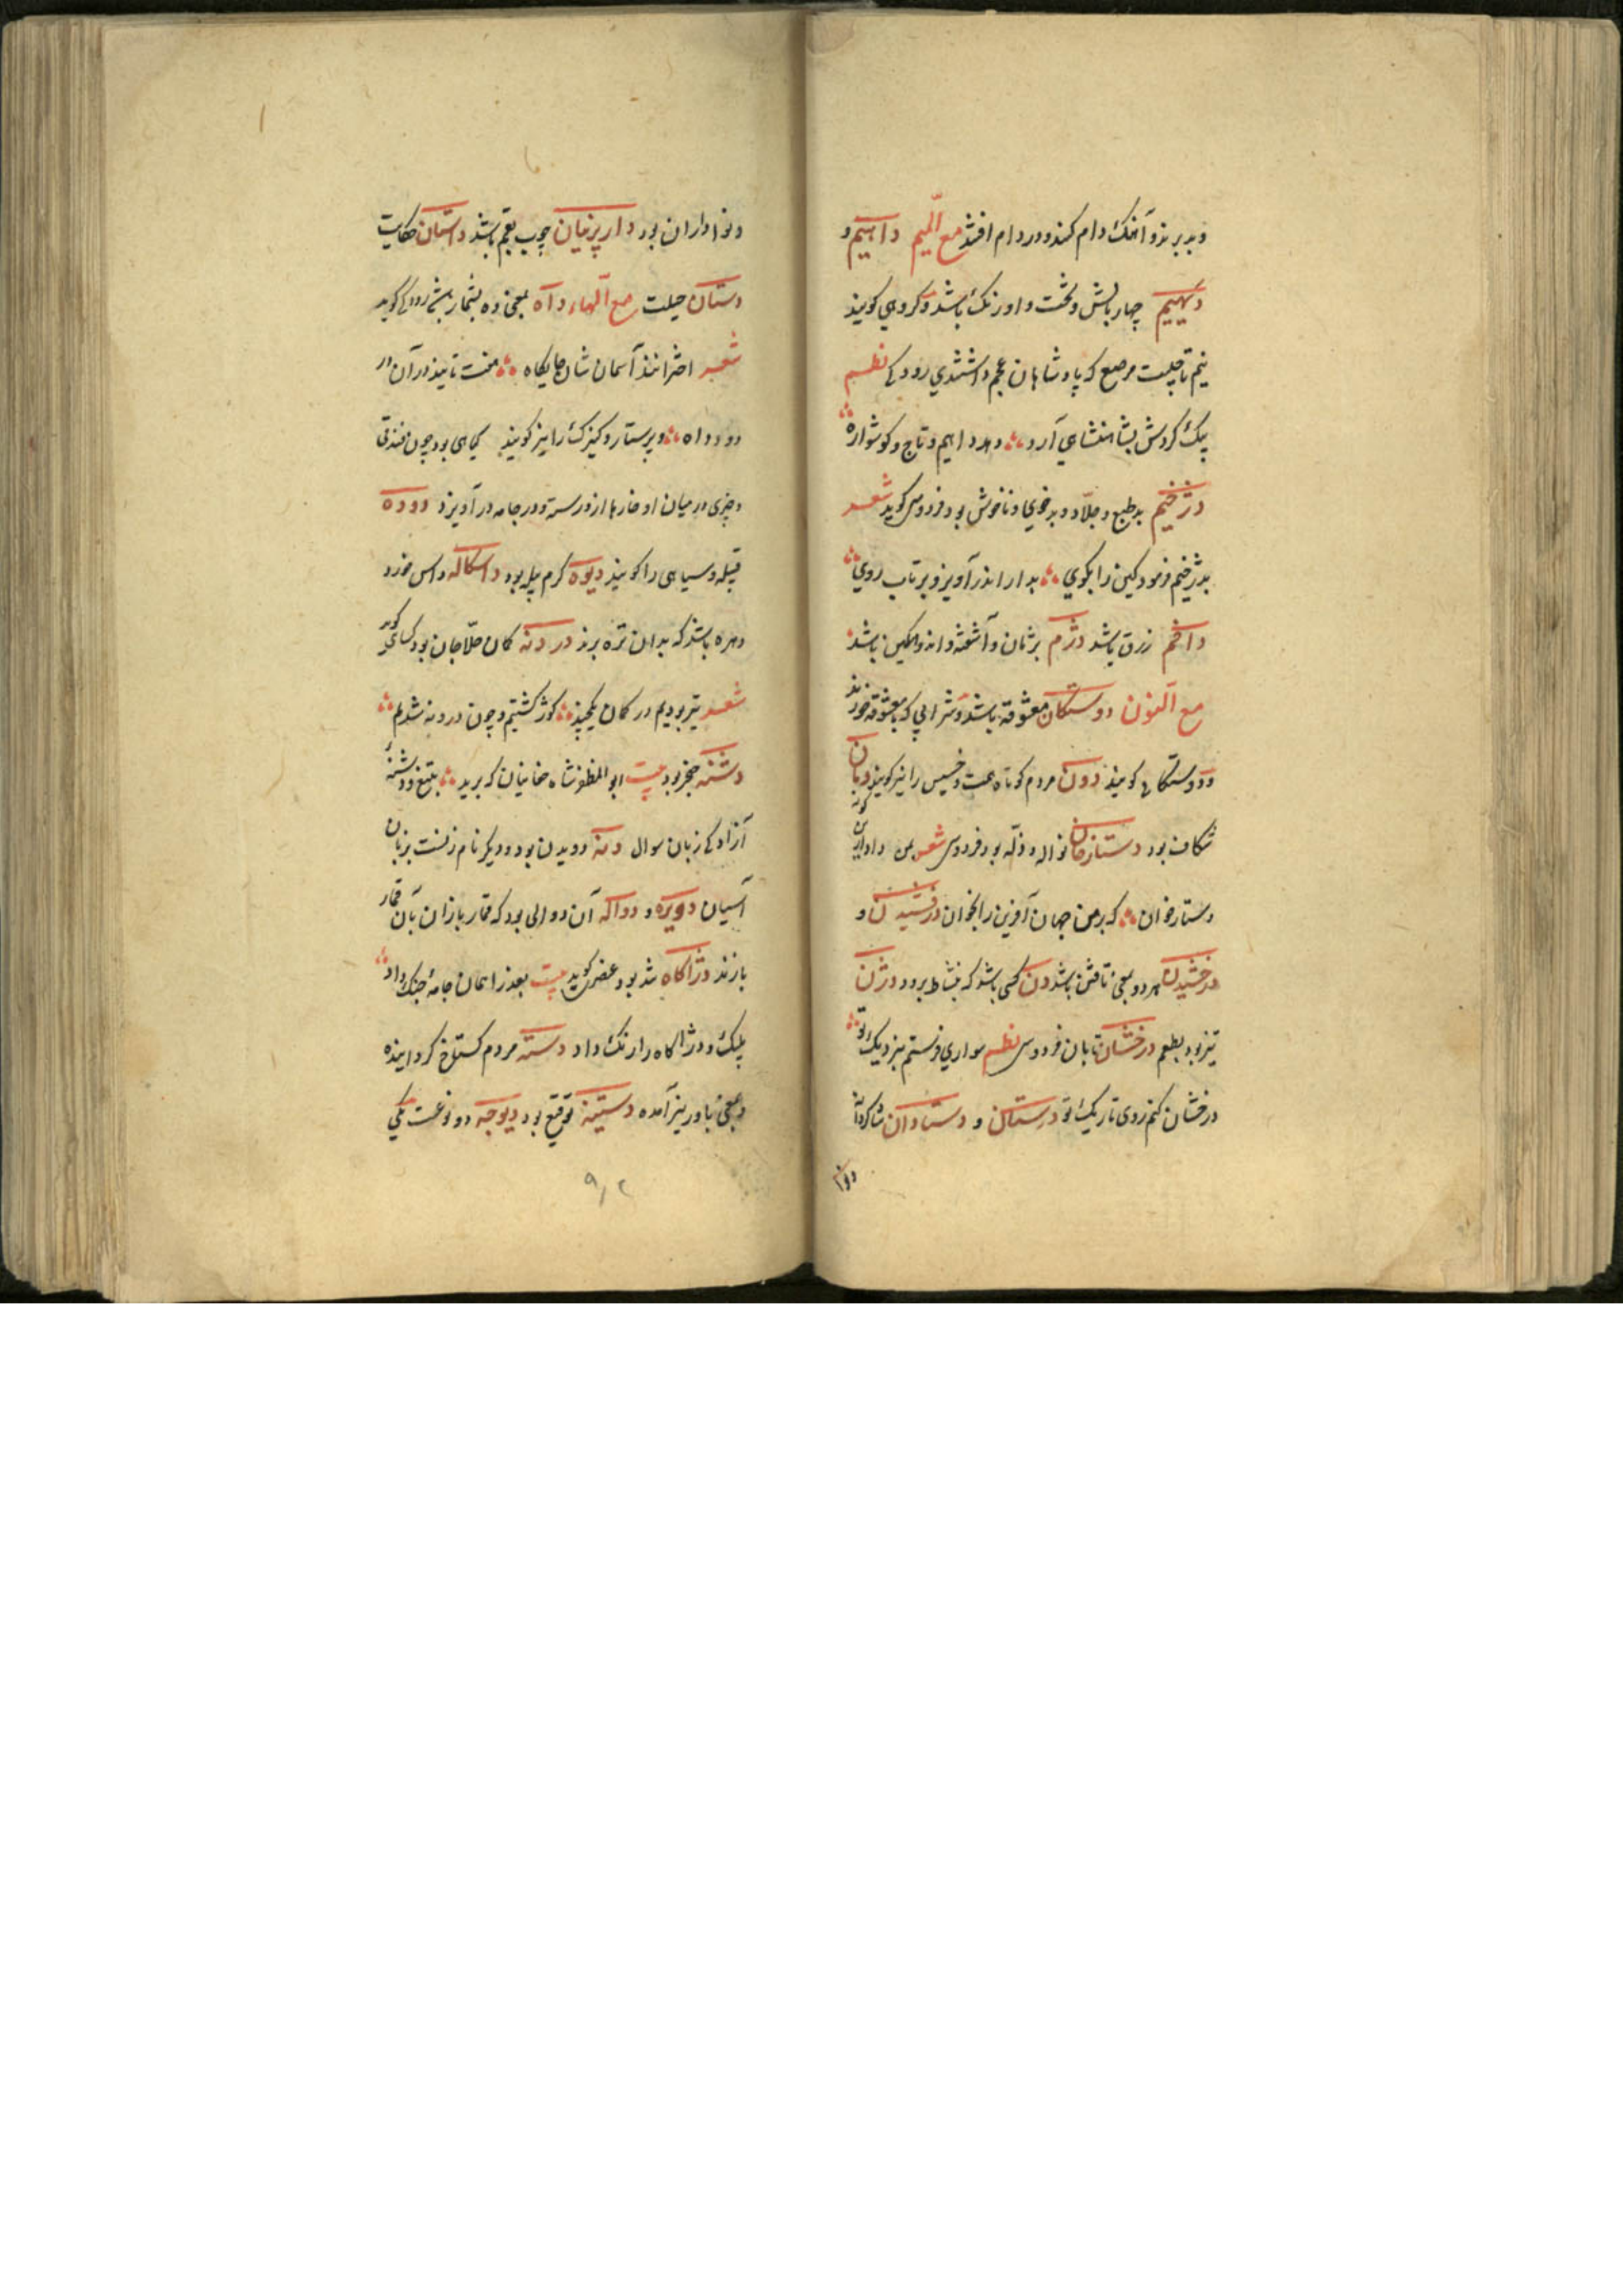 وبدبرند و آنک دام کند و در دام افتد مع المیم داهیم و
دیهیم چهار بالش و تخت و اورنک باشد و کروهی کویند
نیم تاجیست مرصع که پادشاهان عجم داشتندی رودکی نظم
یک کردش بشاهنشاهی آرد دهد داهیم و تاج و کوشواره
دژخیم بدطبع و جلاد و بدخوی و ناخوش بود فردوسی کوید شعر
بدژخیم فرمود کین را بکوی بدار اندر آویز و برتاب روی
داخم زرق باشد دژم پژمان و آشفته و اندوهکین باشد
مع النون دوستکان معشوقه باشد و شرابی که با معشوقه خورند
دوستکانی کویند دون مردم کوتاه همت و خسیس را نیز کویند
شکاف بود دستارخان نواله و زله بود فردوسی شعر من
دستارخوان که بر من جهان آفرین را بخوان درفشیدن و
درخشیدن هر دو بمعنی تافتن باشد دن کسی باشد که بنشاط برود دژن
تیز بود بطعم درخشان تابان فردوسی نظم سواری فرستم بنزدیک تو
درخشان کنم روی تاریک تو درستان و دستاوان شاکردانه
ونوا داران بود دارپرنیان چوب بقم باشد داستان حکایت
دستان حیلت مع الهاء داه بمعنی ده بشمارش رودکی کوید
شعر اخترانند آسمان شان جایکاه هفت تابنده در آن در
دو و داه و پرستار و کنیزک را نیز کویند کیاهی بود چون فندقی
وچیزی در میان او خارها از و رسته و در جامه در آویزد دوده
فتیله و سیاهی را کویند دیوه کرم پیله بود داسکاله داس خرد
دهره باشد که بدان تره برند دردنه کمان حلاجان بود کسائی کوید
شعر تیر بودیم در کمان یکچند کوژ کشتیم و چون دردنه شدیم
دشنه خنجر بود بیت ابوالمظفر شاه چغانیان که برید بتیغ و دشنه
آزادکی زبان سوال دنه دویدن بود و دیکر نام زنست بزبان
آسیان دویره و دواکه آن دوالی بود که قمار بازان بآن قمار
بازند دژاکاه تند بود عنصری کوید بیت بعد از ایمان جامهٔ جنک داد
پلنک و دژاکاه را رنک داد دسته مردم کستاخ کرداینده
وبمعنی یاور نیز آمده دستینه توقیع بود دیوچه دو نوعست یکی